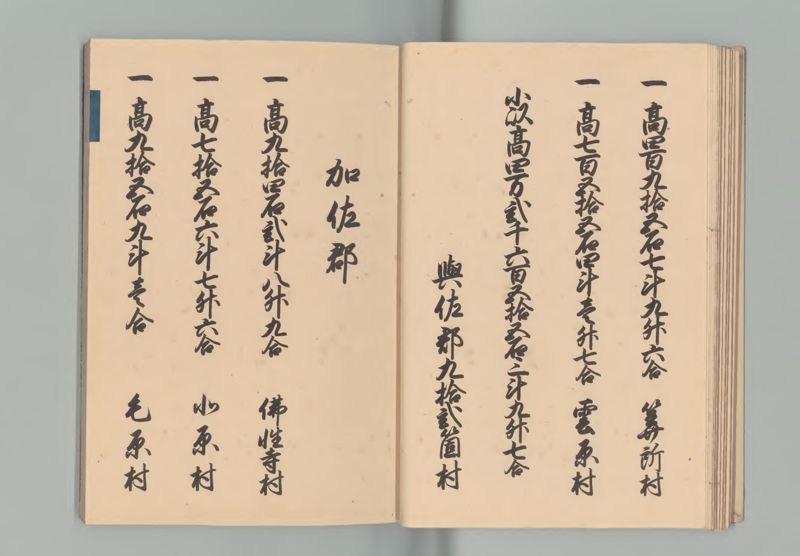 一 高四百九拾五石七斗九升六合 算所村
一 高七百五拾五石四斗壱升七合 雲原村
小以高四万弐千六百五拾五石二斗九升七合
與佐郡九拾弐箇村
加佐郡
一 高九拾四石弐斗八升九合 佛性寺村
一 高七拾五石六斗七升六合 北原村
一 高九拾五石九斗壱合 毛原村